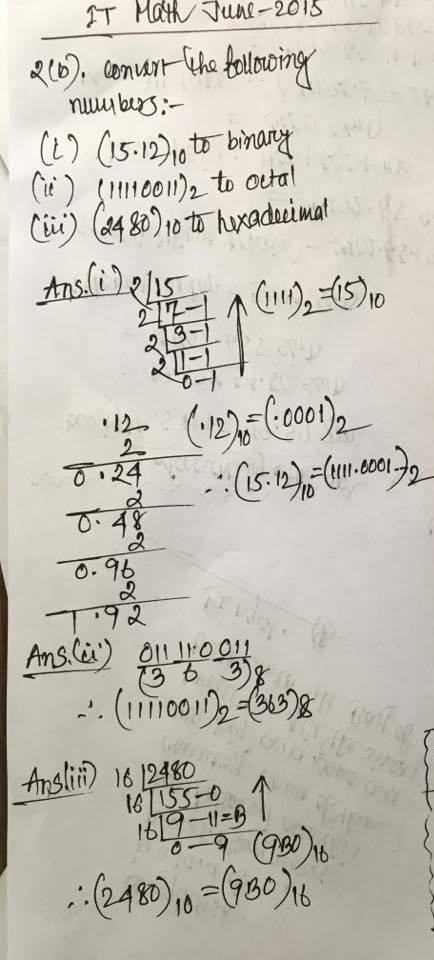 IT Math June-2015
2(b). convert the following
numbers:-
(i) (15.12)10 to binary
(ii) (11110011)2 to octal
(iii) (2480)10 to hexadecimal
Ans.(i) 2 15
2 7-1
2 3-1
2 1-1
0-1
(1111)2=(15)10
.12
2
0.24
2
0.48
2
0.96
2
1.92
(.12)10=(.0001)2
∴(15.12)10=(1111.0001-)2
Ans.(ii) 011 110 011
(3 6 3)8
∴(11110011)2=(363)8
Ans(iii) 16 2480
16 155-0
16 9-11=B
0-9 (9B0)16
∴(2480)10=(9B0)16